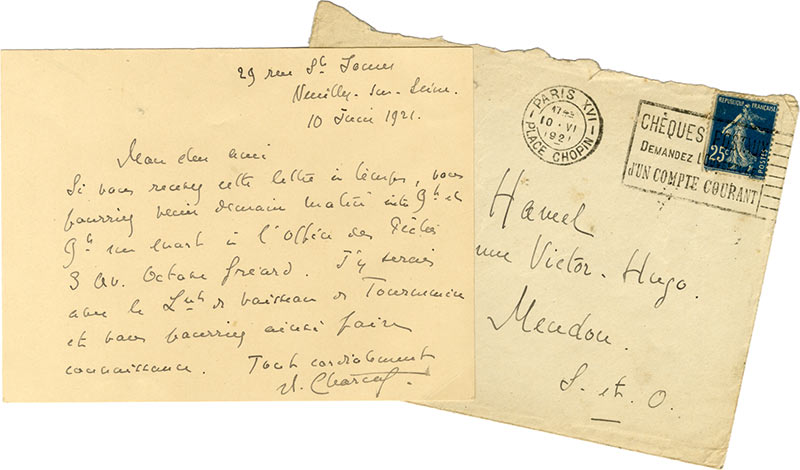 29 rue St James
Neuilly-sur-Seine.
10 Juin 1921.
Mon cher ami
Si vous recevez cette lettre à temps, vous
pourriez venir demain matin entre 9h et
9h un quart à l'Office des Pêches
3 Av. Octave Gréard. J'y serais
avec le Lnt de vaisseau de
et vous pourriez ainsi faire
connaissance. Tout cordialement
Charcot
PARIS XVI
10 · VI
1921
PLACE CHOPIN
CHÈQUES
DEMANDEZ
D'UN COMPTE COURANT
REPUBLIQUE FRANÇAISE
25c
POSTES
Hamel
Victor-Hugo.
Meudon.
S. et. O.